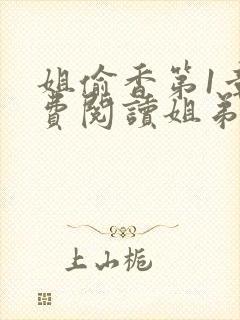 姐偷香第1章
費閱讀姐弟
上山梔